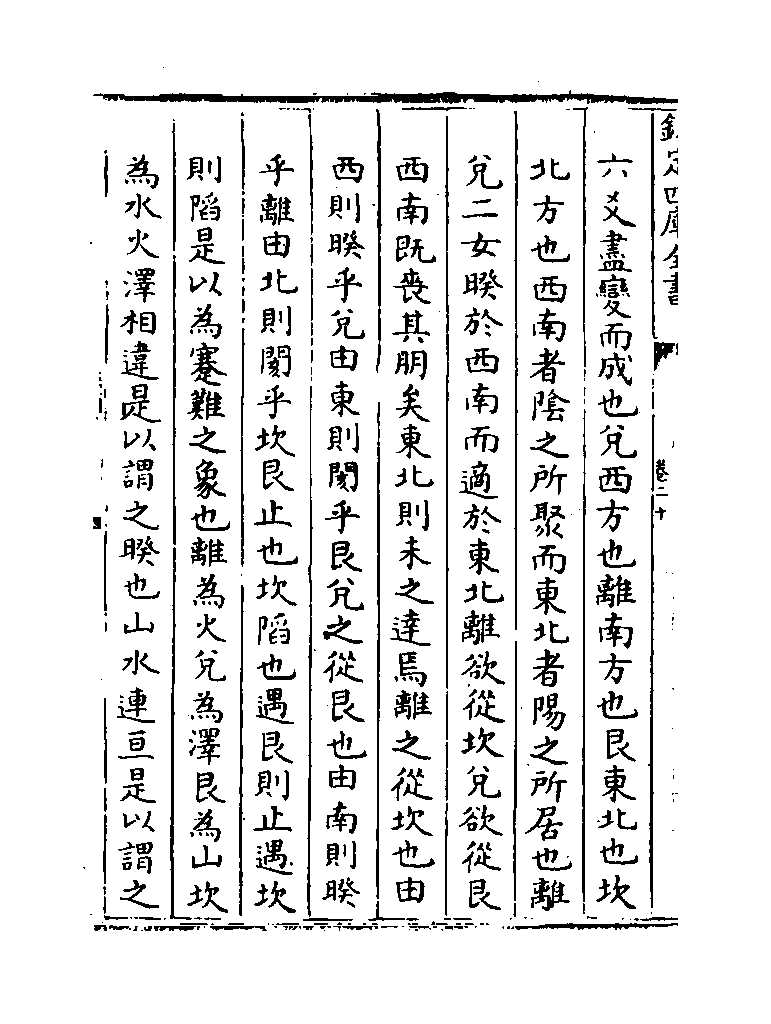 欽定四庫全書
卷二十
六爻盡變而成也兌西方也離南方也艮東北也坎
北方也西南者陰之所聚而東北者陽之所居也離
兌二女暌於西南而適於東北離欲從坎兌欲從艮
西南既喪其朋矣東北則未之達焉離之從坎也由
西則暌乎兌由東則閡乎艮兌之從艮也由南則暌
乎離由北則閡乎坎艮止也坎䧟也遇艮則止遇坎
則䧟是以為蹇難之象也離為火兌為澤艮為山坎
為水火澤相違是以謂之暌也山水連亘是以謂之